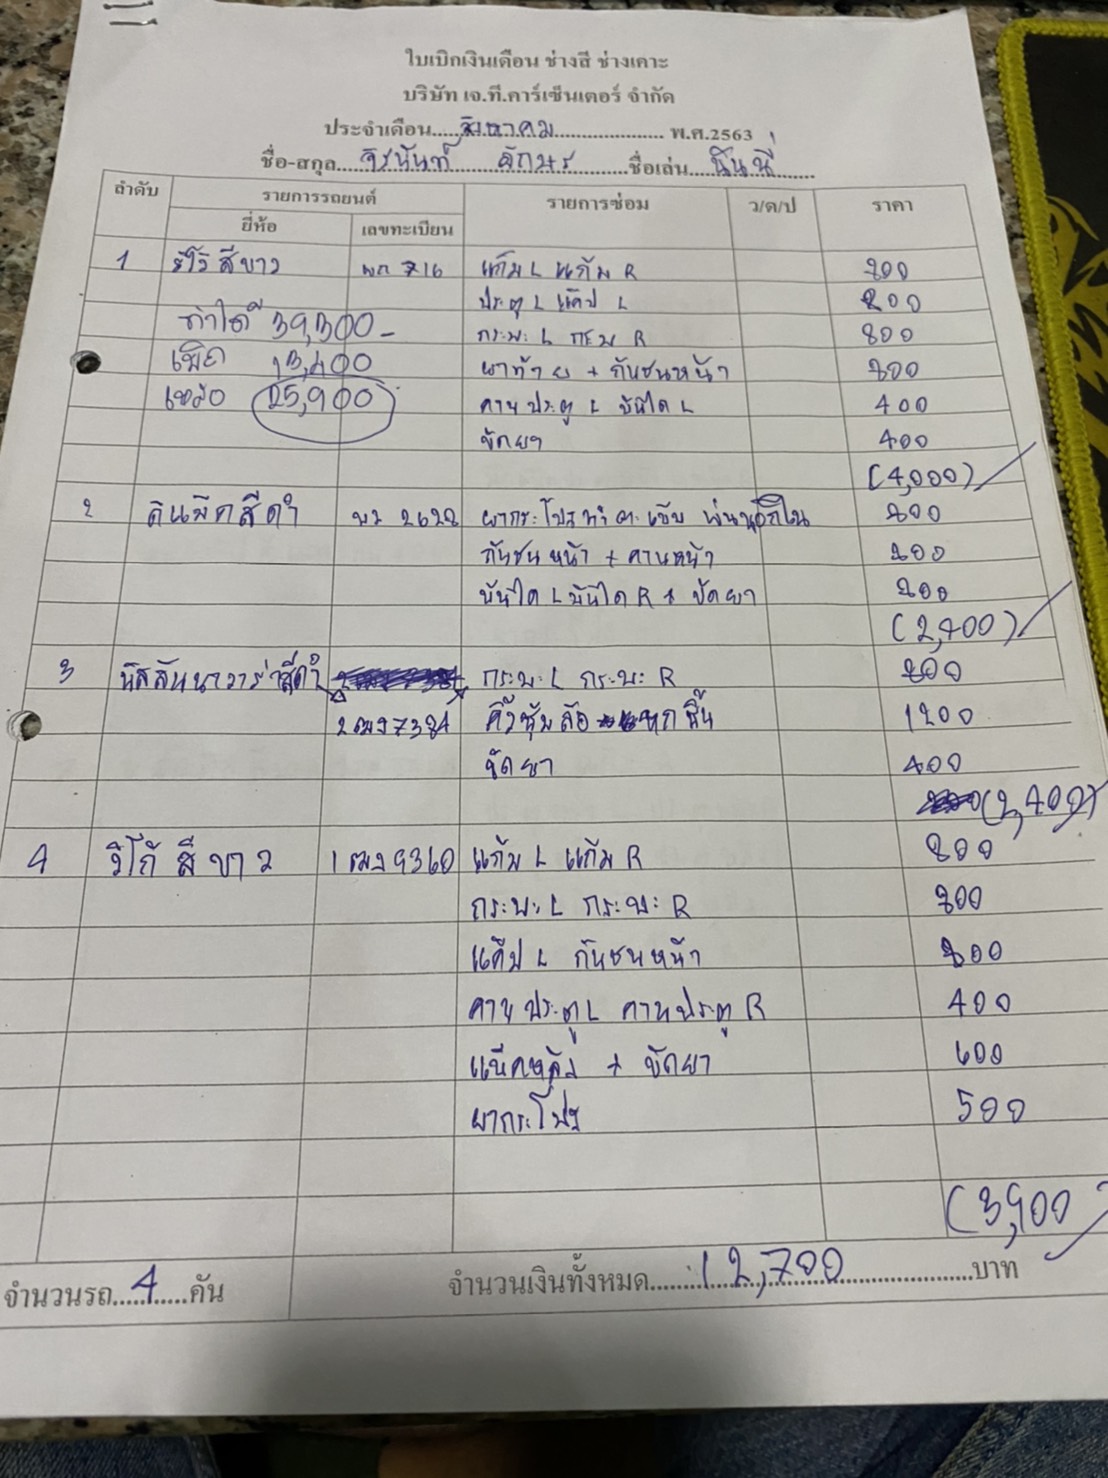 ใบเบิกเงินเดือน ช่างสี ช่างเคาะ
บริษัท เจ.ที.คาร์เซ็นเตอร์ จำกัด
ประจำเดือน.....สิงหาคม..................... พ.ศ.2563
ชื่อ-สกุล....จิรนันท์ อักษร.......ชื่อเล่น...นันนี่......
ลำดับ รายการรถยนต์ รายการซ่อม ว/ด/ป ราคา
ยี่ห้อ เลขทะเบียน
1 วีโก้ สีขาว 716 แก้ม L แก้ม R 800
ประตู L แค๊ป L 800
ทำได้ 39,300- กระบะ L กระบะ R 800
เบิก 13,400 ฝาท้าย + กันชนหน้า 800
เหลือ 25,900 คานประตู L บันได L 400
ขัดยา 400
(4,000)
2 ดีแม็คสีดำ 2622 ฝากระโปรง พ่นนอกใน 800
กันชนหน้า + คานหน้า 800
บันได L บันได R + ขัดยา 800
(2,400)
3 นิสสันนาวาร่าสีดำ กระบะ L กระบะ R 800
2ฒง7384 คิ้วซุ้มล้อ หกชิ้น 1200
ขัดยา 400
(2,400)
4 วีโก้ สีขาว 1ฒง9360 แก้ม L แก้ม R 800
กระบะ L กระบะ R 800
แค๊ป L กันชนหน้า 800
คานประตู L คานประตู R 400
แน๊คหลัง + ขัดยา 600
ฝากระโปรง 500
(3,900)
จำนวนรถ...4......คัน จำนวนเงินทั้งหมด........12,700...................บาท